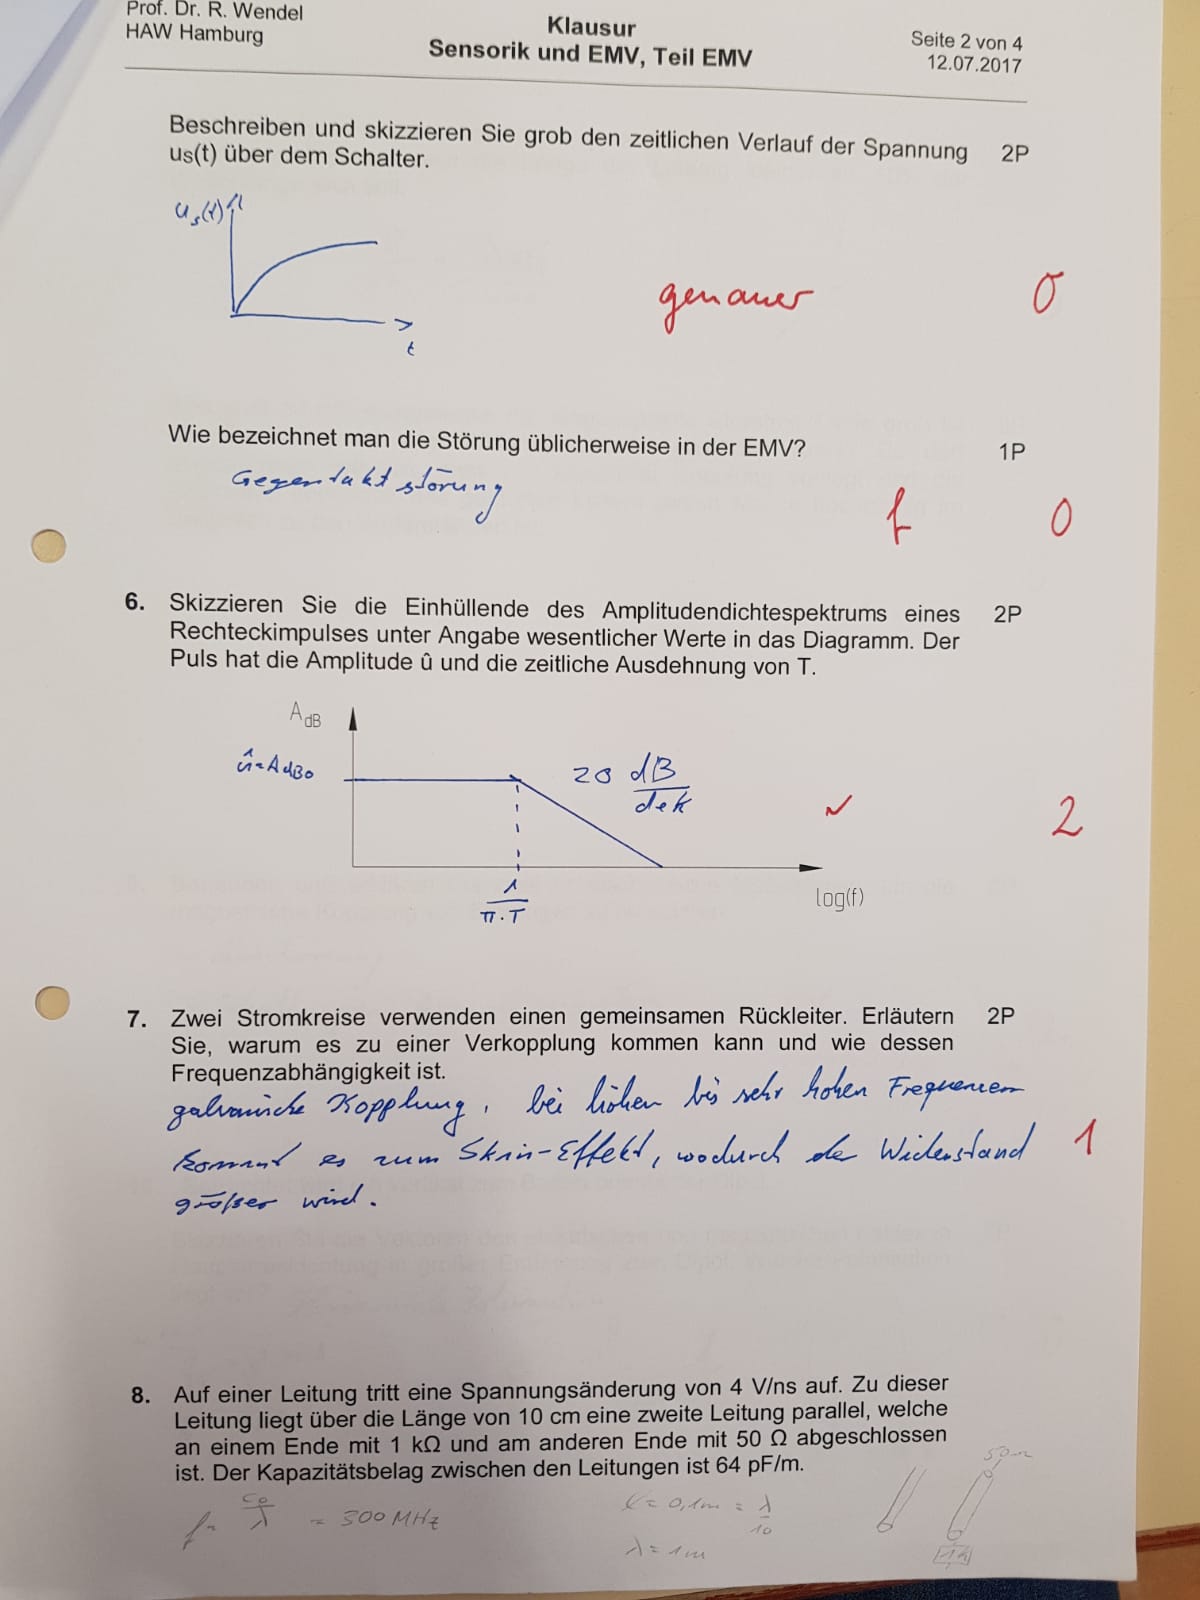 Prof. Dr. R. Wendel
HAW Hamburg
Klausur
Sensorik und EMV, Teil EMV
Seite 2 von 4
12.07.2017
Beschreiben und skizzieren Sie grob den zeitlichen Verlauf der Spannung 2P
us(t) über dem Schalter.
us(t)
t
genauer 0
Wie bezeichnet man die Störung üblicherweise in der EMV? 1P
Gegentaktstörung
f 0
6. Skizzieren Sie die Einhüllende des Amplitudendichtespektrums eines 2P
Rechteckimpulses unter Angabe wesentlicher Werte in das Diagramm. Der
Puls hat die Amplitude û und die zeitliche Ausdehnung von T.
AdB
û=AdB0
20 dB/dek
2
1/π·T
log(f)
7. Zwei Stromkreise verwenden einen gemeinsamen Rückleiter. Erläutern 2P
Sie, warum es zu einer Verkopplung kommen kann und wie dessen
Frequenzabhängigkeit ist.
galvanische Kopplung, bei hohen bis sehr hohen Frequenzen
kommt es zum Skin-Effekt, wodurch der Widerstand 1
größer wird.
8. Auf einer Leitung tritt eine Spannungsänderung von 4 V/ns auf. Zu dieser
Leitung liegt über die Länge von 10 cm eine zweite Leitung parallel, welche
an einem Ende mit 1 kΩ und am anderen Ende mit 50 Ω abgeschlossen
ist. Der Kapazitätsbelag zwischen den Leitungen ist 64 pF/m.
50Ω
f= c0/λ = 300 MHz
l = 0,1m = λ/10
λ = 1m